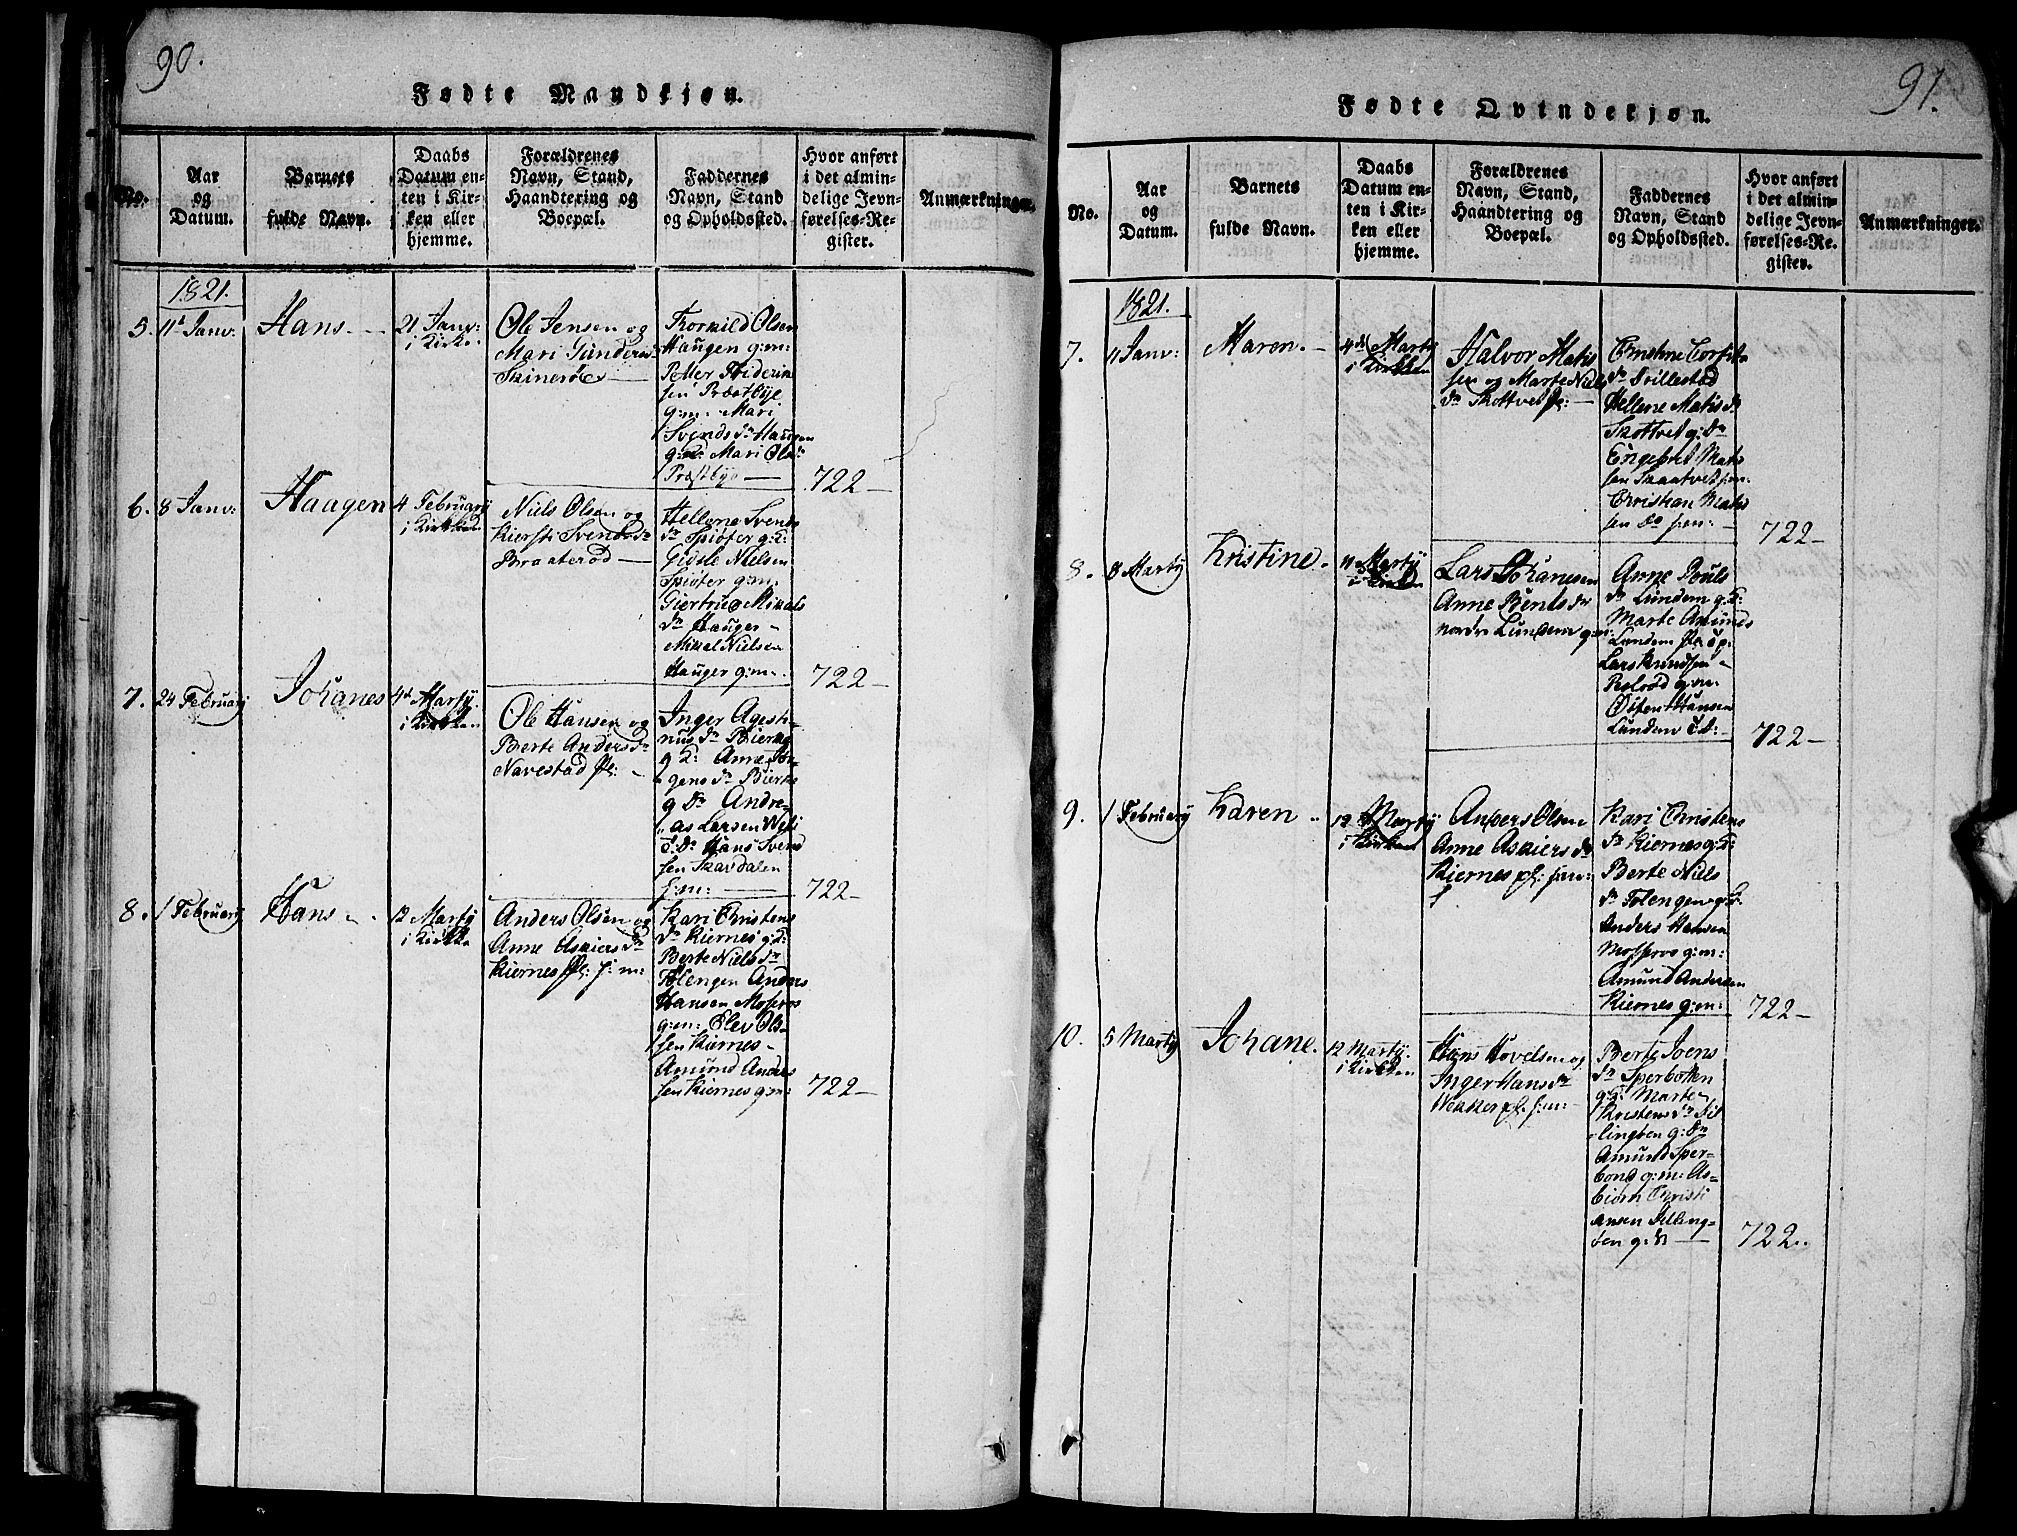 90.
Fødte Mandkjøn.
No.
Aar
og
Datum.
Barnets
fulde Navn.
Daabs
Datum en-
ten i Kir-
ken eller
hjemme.
Forældrenes
Navn, Stand,
Haandtering og
Boepæl.
Faddernes
Navn, Stand
og Opholdssted.
Hvor anført
i det almin-
delige Jevn-
førelses-Re-
gister.
Anmærkninger.
1821.
5.
11 Janv:
Hans
21 Janv:
i Kirke.
Ole Jensen og
Mari Gunders
Skinerøe
Torkild Olsen
Haugen g:m:
Præstbye
g:m: Mari
Svends dr Haugen
Mari Ols
Præstbye
722
6.
8 Janv:
Haagen
4 Februarÿ
i Kirken
Niels Olsen og
Kiersti Svends dr
Braaterød
Hellene Svens
dr Spiøter g:K:
Nielsen
Spiøter g:m:
Giertrue Mikals
dr Hauger
Mikal Nielsen
Hauger g:m:
722
7.
24 Februarÿ
Johanes
4d Martÿ.
i Kirken
Ole Hansen og
Berte Anders dr
Navestad pl:
Inger Agest-
nus dr Bierke
g K: Anne Jør-
gens dr Bierke
g Dr Andre-
as Larsen Weli
Hans Svend
sen Skardalen
g:m:
722
8.
1 Februarÿ
Hans
12 Martÿ
i Kirke
Anders Olsen og
Anne Askiers dr
Kiernes pl: s:m:
Kari Christens
dr Kiernes g:K:
Berte Niels dr
Tolengen Anders
Hansen Mosseros
g:m: Elev Ols-
sen Kiernes
Amund Anders
sen Kiernes g:m:
722
91.
Fødte Qvindekjøn.
No.
Aar
og
Datum.
Barnets
fulde Navn.
Daabs
Datum en-
ten i Kir-
ken eller
hjemme.
Forældrenes
Navn, Stand,
Haandtering og
Boepæl.
Faddernes
Navn, Stand
og Opholdssted.
Hvor anført
i det almin-
delige Jevn-
førelses-Re-
gister.
Anmærkninger.
1821.
7.
11 Janv:
Maren.
4d Martÿ
i Kirken
Halvor Matis
sen og Marte Niels
dr Skottvet pl:
Hellene Matis dr
Skottvet g: dr
Engebret Matis
sen Skaatvet s:m:
Christian Matis
sen do s:m:
722
8.
8 Martÿ
Kristine.
11 Martÿ
i Kirken
Lars Johanesen
Anne Bents dr
nordre Lundem g:m:
Anne Pouls
dr Lundem g:K:
Marte Amunds
Lundem
Lars Knudsen
Rolvød g:m:
Østen Hansen
Lundem
722
9.
1 Februarÿ
Karen
12 Martÿ
i Kirken
Anders Olsen
Anne Askiers dr
Kiernes pl: s:m:
Kari Christens
dr Kiernes g:K:
Berte Niels
dr Tolengen g:K:
Anders Hansen
Mosseros g:m:
Amund Andersen
Kiernes g:m:
722
10.
5 Martÿ
Johane.
12 Martÿ.
i Kirken
Hans Hovelsen og
Inger Hans dr
Wekker pl: s:m:
Berte Joens
dr Sperbotten
g:K: Marte
Kristens dr Sil
lingben g: Dr
Amund Sper-
bond g:m: As-
biørn Christi
ansen Silling-
ben g:
722